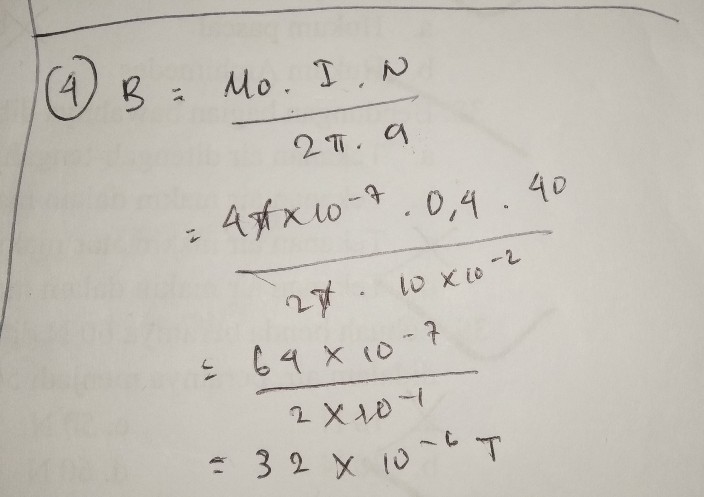 ④ B = μo. I. N
2π. a
= 4π×10⁻⁷ . 0,4 . 40
2π . 10 ×10⁻²
= 64 × 10⁻⁷
2 ×10⁻¹
= 32 × 10⁻⁶ T